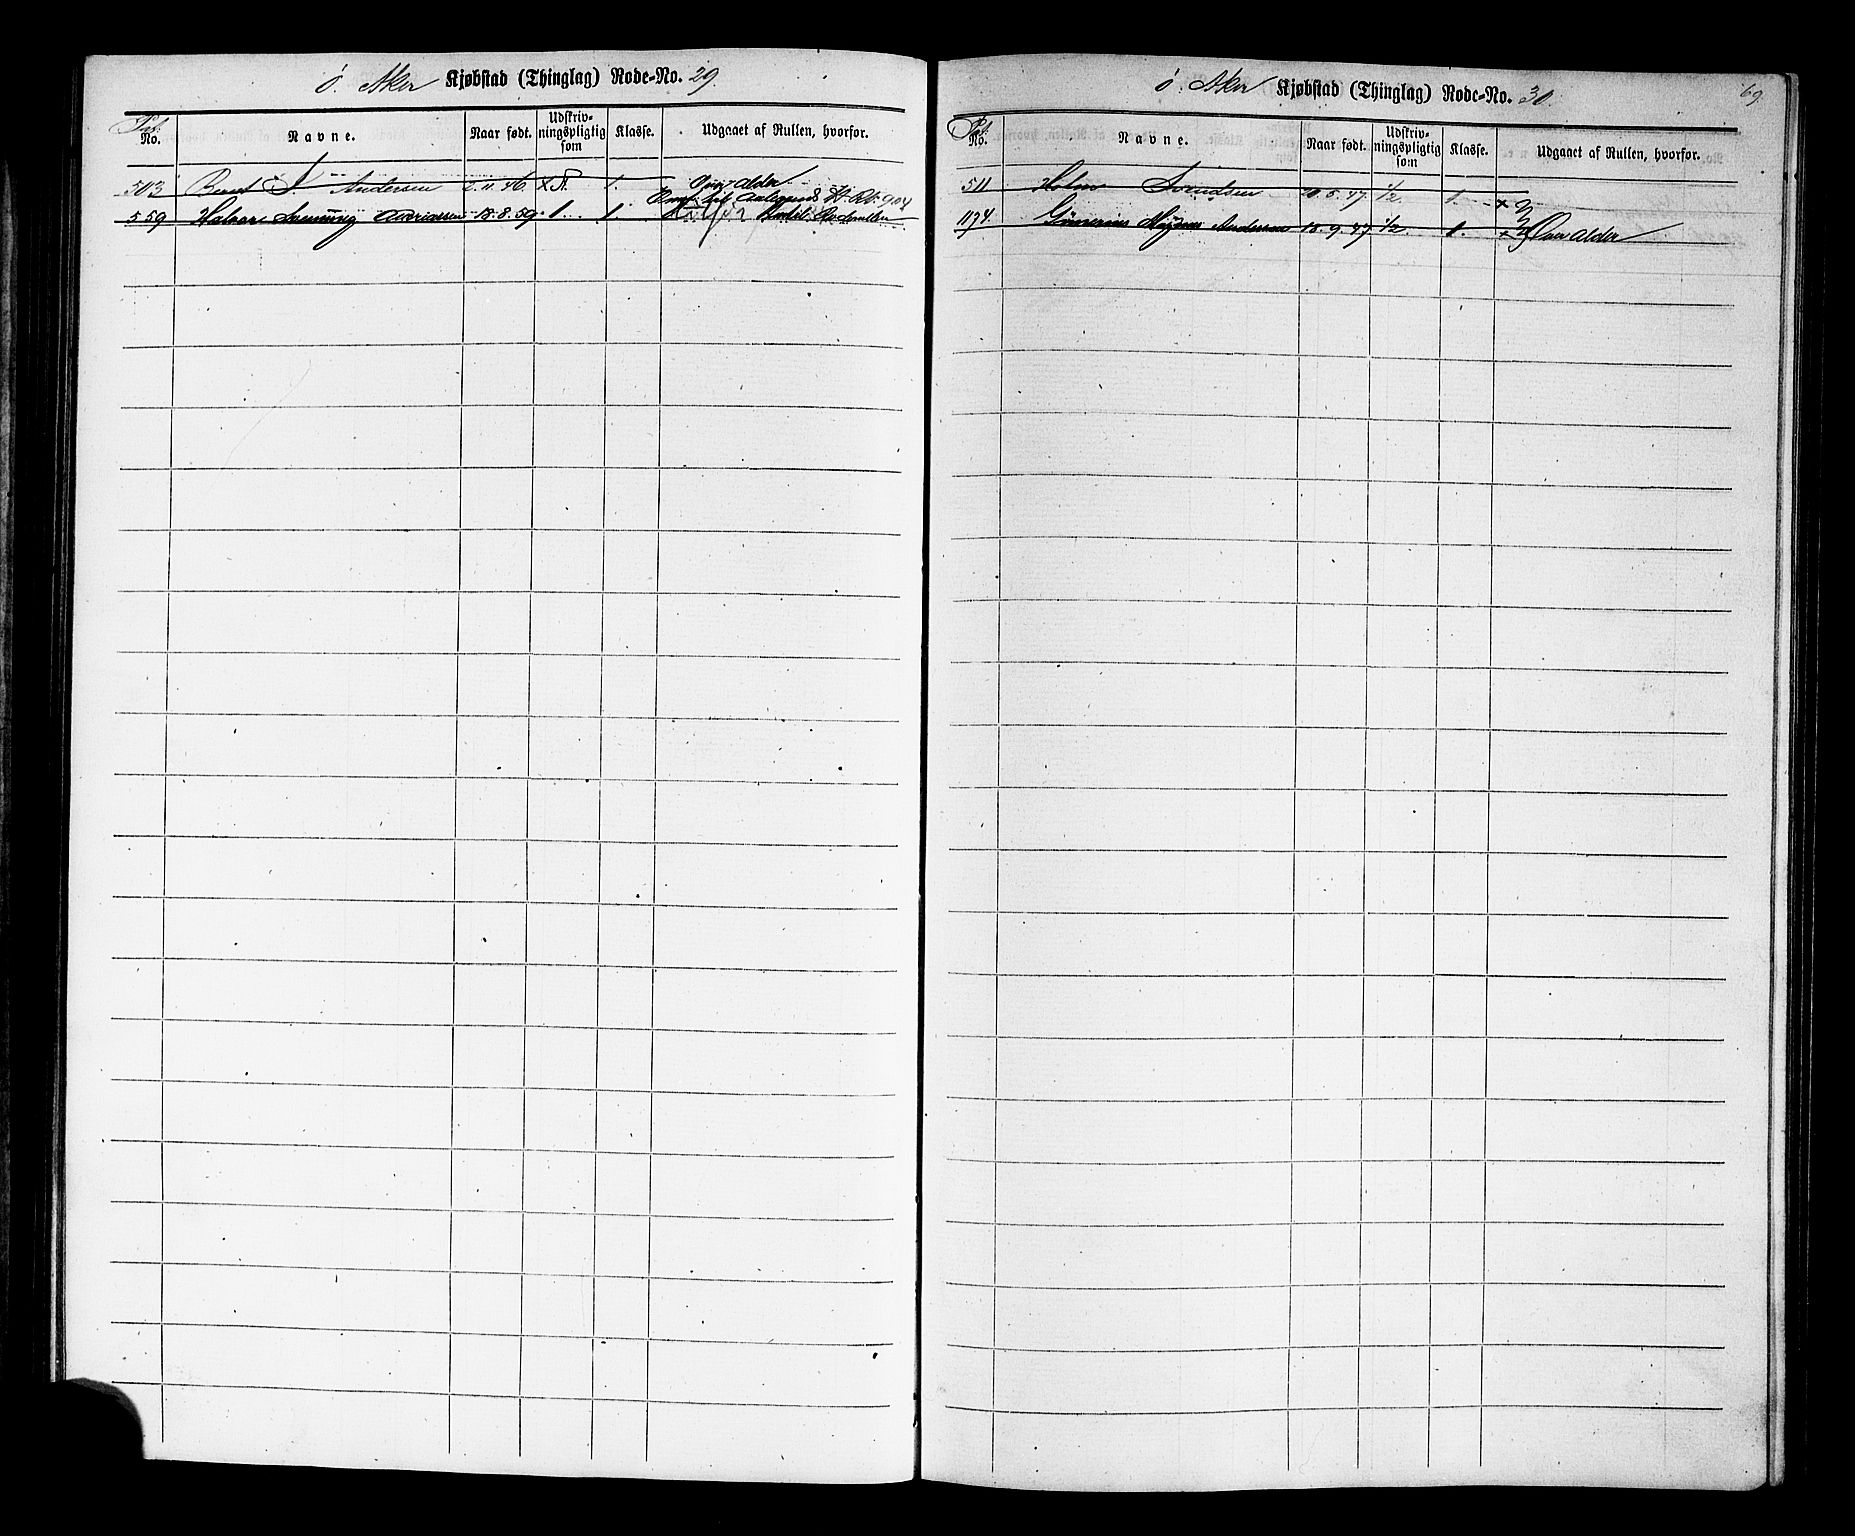 Ö. Aker Kjøbstad (Thinglag) Rode-No. 29
Pat. No. Navne. Naar født. Udskrivningspligtig som Klasse. Udgaaet af Rullen, hvorfor.
503 Bernt A. Andersen 2.11.46. 1. Over Alder
559 Halvor 18.8.59 1. 1.
69
Ö. Aker Kjøbstad (Thinglag) Rode-No. 30
Pat. No. Navne. Naar født. Udskrivningspligtig som Klasse. Udgaaet af Rullen, hvorfor.
511 Svendsen 20.5.47. 1/2 1.
1174. Andersen 15.9.47 1/2 1. Over Alder